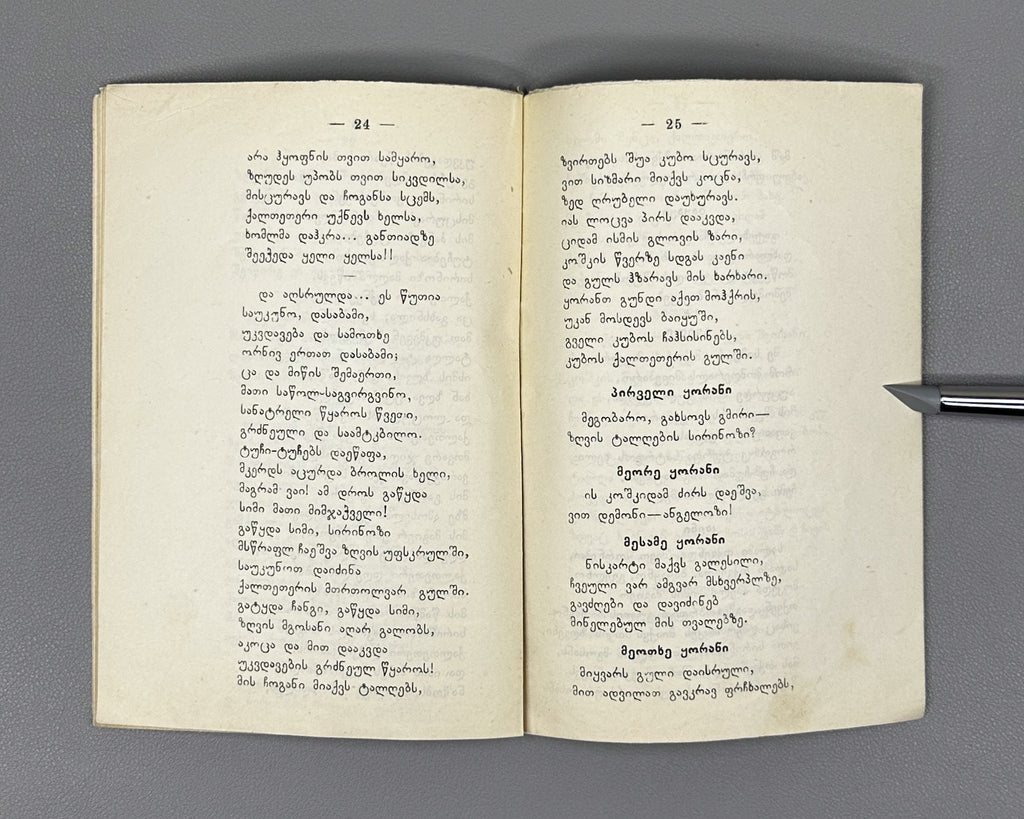 — 24 —
არა ჰყოფნის თვით სამყარო,
ზღუდეს უპობს თვით სიკვდილსა,
მისცურავს და ჩოგანსა სცემს,
ქალთეთერი უქნევს ხელსა,
ხომლმა დაჰკრა... განთიადზე
შეეჭედა ყელი ყელსა!!
—
და აღსრულდა... ეს წუთია
საუკუნო, დასაბამი,
უკვდავება და სამოთხე
ორნივ ერთათ დასაბამი;
ცა და მიწის შემაერთი,
მათი საწოლ-საგვირგვინო,
სანატრელი წყაროს წვეთი,
გრძნეული და საამტკბილო.
ტუჩი-ტუჩებს დაეწაფა,
მკერდს აცურდა ბროლის ხელი,
მაგრამ ვაი! ამ დროს გაწყდა
სიმი მათი მიმჯაჭველი!
გაწყდა სიმი, სირინოზი
მსწრაფლ ჩაეშვა ზღვის უფსკრულში,
საუკუნოთ დაიძინა
ქალთეთერის მთრთოლვარ გულში.
გატყდა ჩანგი, გაწყდა სიმი,
ზღვის მგოსანი აღარ გალობს,
აკოცა და მით დააკვდა
უკვდავების გრძნეულ წყაროს!
მის ჩოგანი მიაქვს ტალღებს,
— 25 —
ზვირთებს შუა კუბო სცურავს,
ვით სიზმარი მიაქვს კოცნა,
ზედ ღრუბელი დაუხურავს.
იას ლოცვა პირს დააკვდა,
ციდამ ისმის გლოვის ზარი,
კოშკის წვერზე სდგას კაენი
და გულს ჰზარავს მის ხარხარი.
ყორანთ გუნდი აქეთ მოჰქრის,
უკან მოსდევს ბაიყუში,
გველი კუბოს ჩაჰსისინებს,
კუბოს ქალთეთერის გულში.
პირველი ყორანი
მეგობარო, გახსოვს გმირი—
ზღვის ტალღების სირინოზი?
მეორე ყორანი
ის კოშკიდამ ძირს დაეშვა,
ვით დემონი—ანგელოზი!
მესამე ყორანი
ნისკარტი მაქვს გალესილი,
ჩვეული ვარ ამგვარ მსხვერპლზე,
გავძღები და დავიძინებ
მინელებულ მის თვალებზე.
მეოთხე ყორანი
მიყვარს გული დაისრული,
მით ადვილათ გავკრავ ფრჩხალებს,